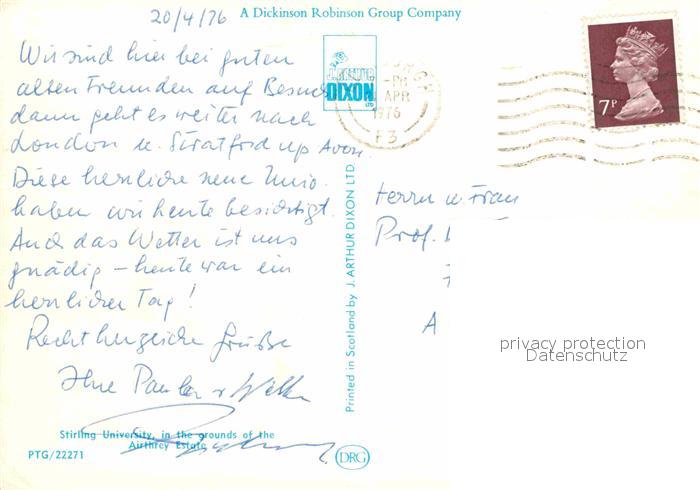 20/4/76
A Dickinson Robinson Group Company
Wir sind hier bei guten
alten Freunden auf Besuch
dann geht es weiter nach
London u. Stratford up Avon.
Diese herrliche neue Univ.
haben wir heute besichtigt.
Auch das Wetter ist uns
gnädig – heute war ein
herrlicher Tag!
Recht herzliche Grüße
Ihre
Stirling University, in the grounds of the
Airthrey Estate
PTG/22271
J. ARTHUR
DIXON
LTD
Printed in Scotland by J. ARTHUR DIXON LTD.
DRG
PM
APR
1976
F3
7P
Herrn u. Frau
Prof.
A
privacy protection
Datenschutz